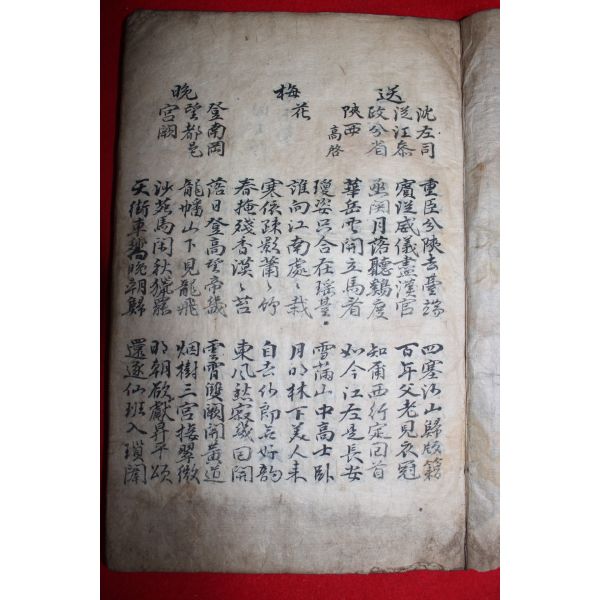 送
沈左司
從江叅
政分省
陝西
高啓
重臣分陝去臺端
賓從威儀盡漢官
四塞河山歸版籍
百年父老見衣冠
函関月落聽鷄度
華岳雲開立馬看
知爾西行定回首
如今江左是長安
梅
花
瓊姿只合在瑤臺
誰向江南處〻栽
雪滿山中高士臥
月明林下美人来
寒依疎影蕭〻竹
春掩殘香漠〻苔
自去何郎無好韵
東風愁寂幾回開
晩
登南岡
望都邑
宮闕
落日登高望帝畿
龍幡山下見龍飛
雲霄雙闕開黃道
烟樹三宮接翠微
沙苑馬閑秋獵罷
天街車晩朝歸
明朝欲獻昇平頌
還逐仙班入瑣闈